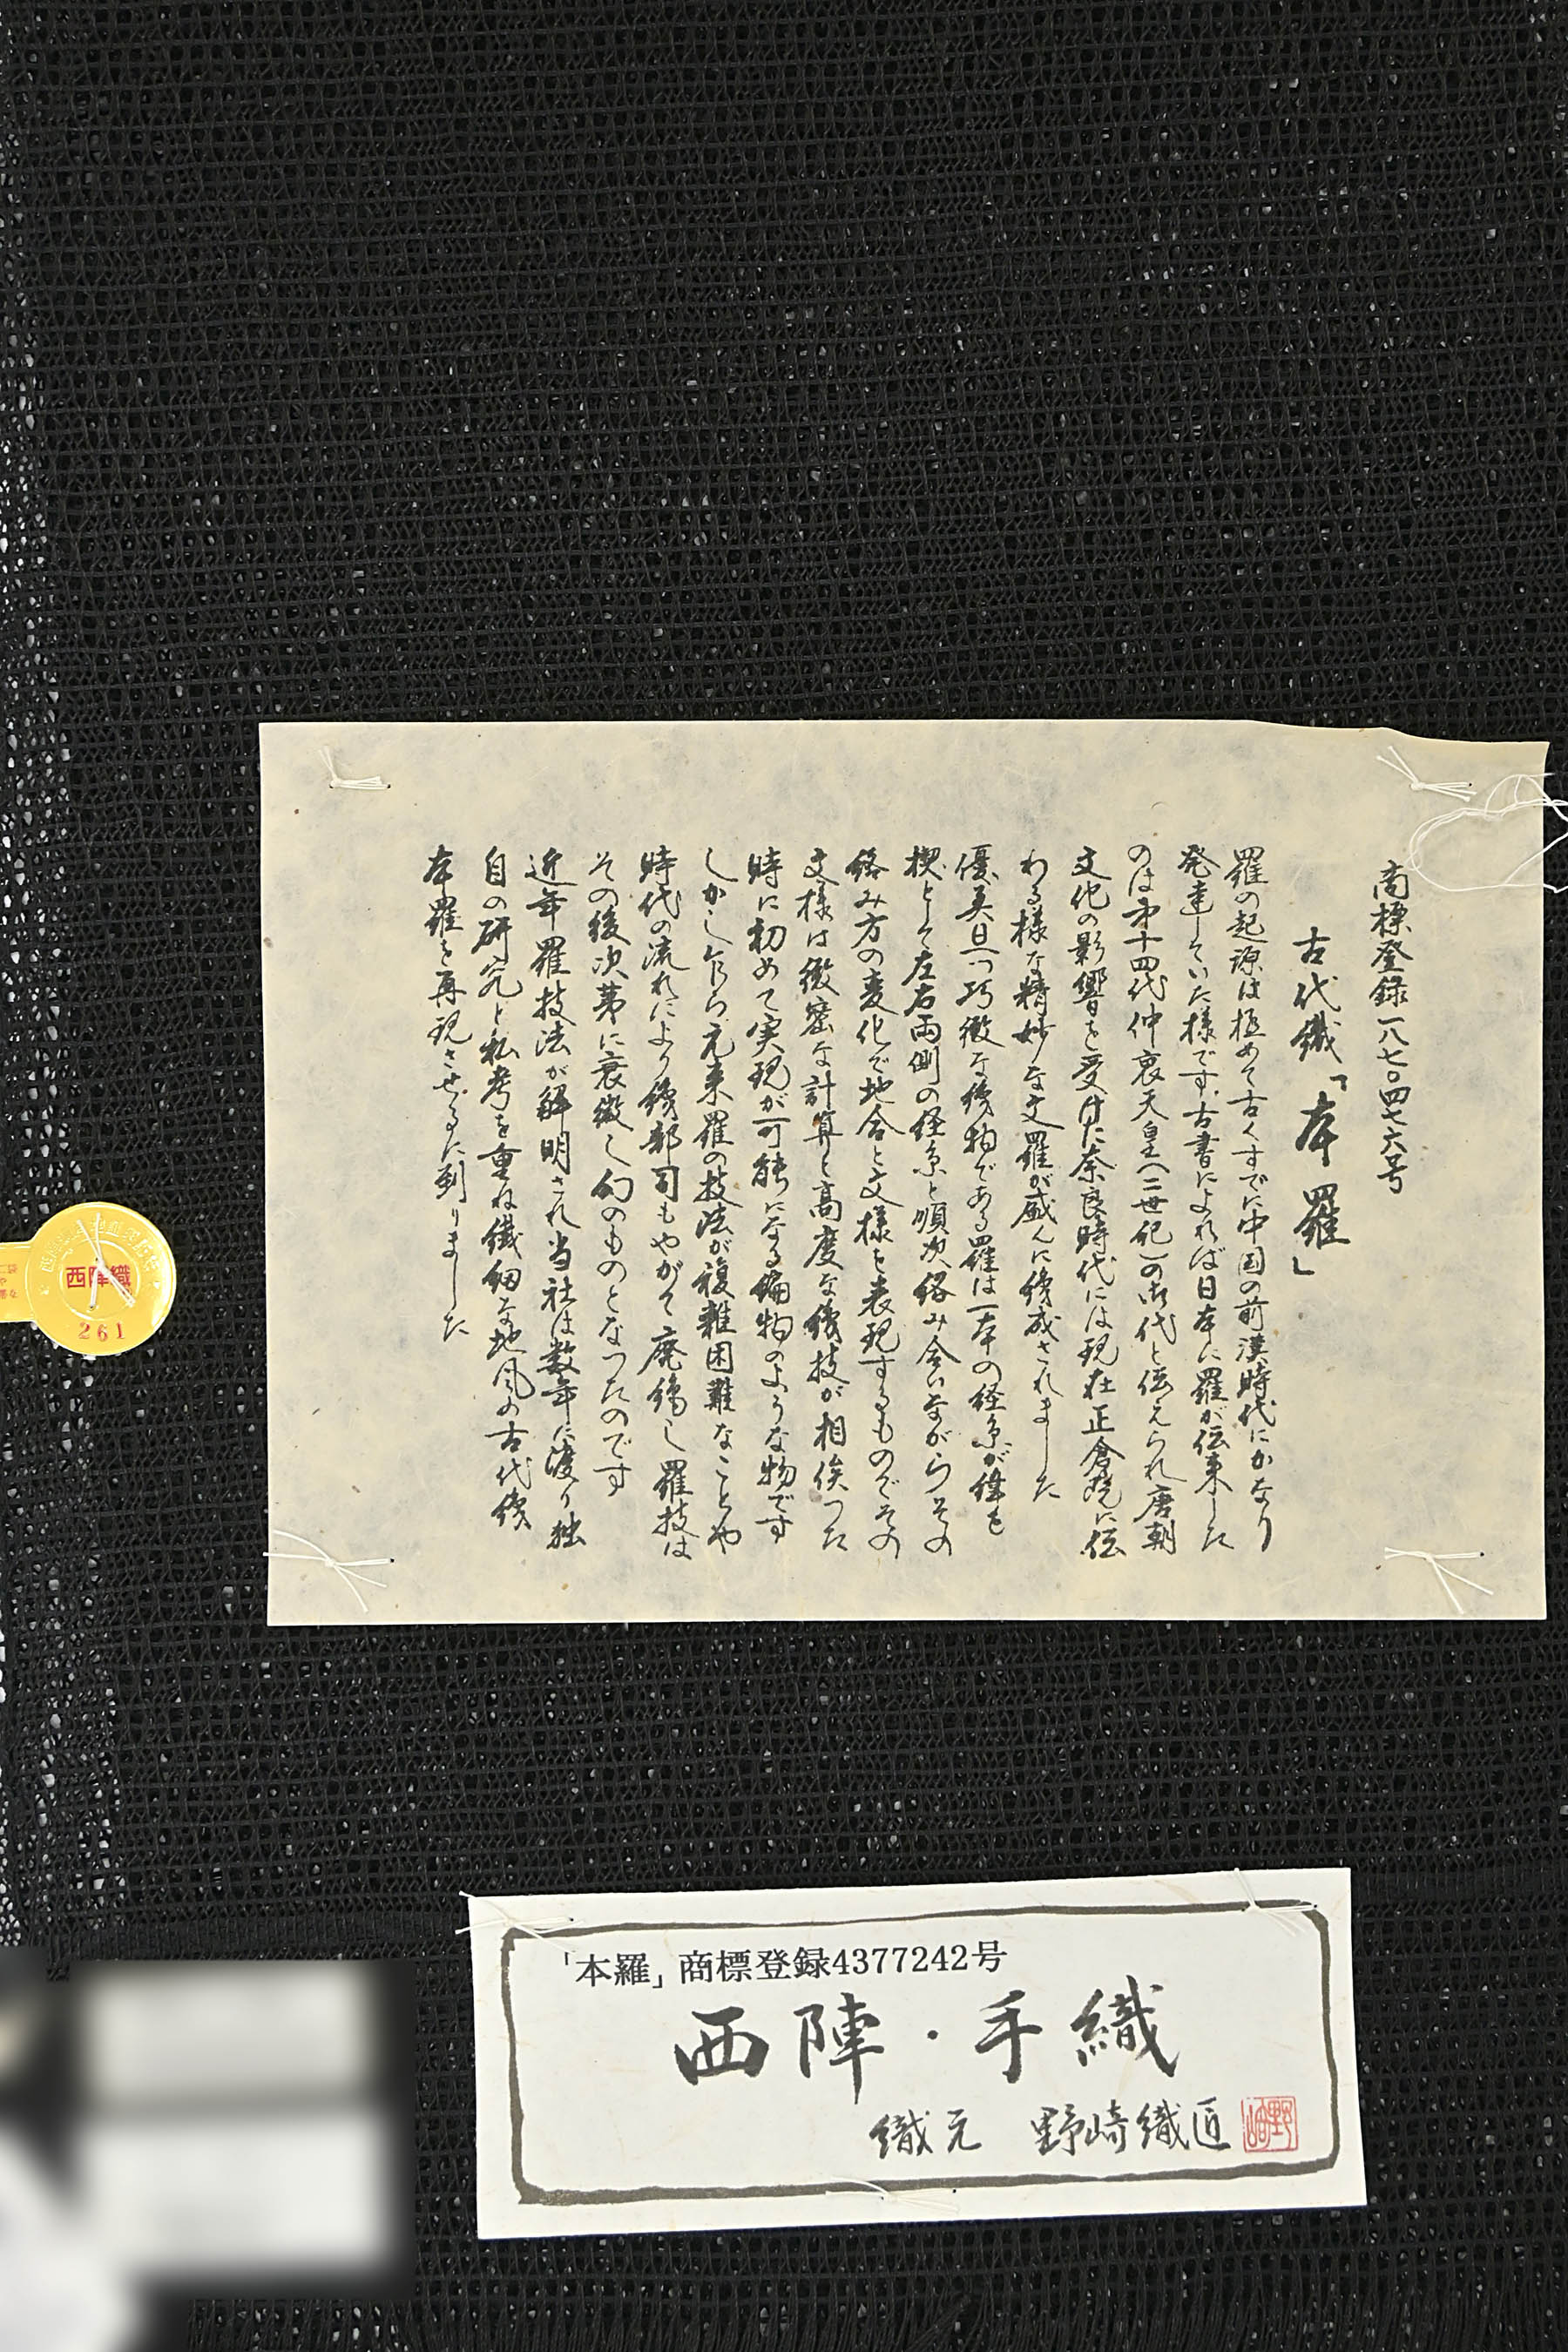 商標登録一八七〇四七六号
古代織「本羅」
羅の起源は極めて古くすでに中国の前漢時代にかなり
発達していた様です。古書によれば日本に羅が伝来した
のは第十四代仲哀天皇(二世紀)の御代と伝えられ唐朝
文化の影響を受けた奈良時代には現在正倉院に伝
わる様な精妙な文羅が盛んに織成されました
優美且つ巧緻な織物である羅は一本の経糸が緯を
楔として左右両側の経糸と順次絡み合いながらその
絡み方の変化で地合と文様を表現するものでその
文様は緻密な計算と高度な織技が相俟った
時に初めて実現が可能になる編物のような物です
しかし乍ら元来羅の技法が複雑困難なことや
時代の流れにより織部司もやがて廃絶し羅技は
その後次第に衰微し幻のものとなったのです
近年羅技法が解明され当社は数年に渡り独
自の研究と私考を重ね繊細な地風の古代織
本羅を再現させるに到りました
西陣織
261
「本羅」商標登録4377242号
西陣・手織
織元 野崎織匠
野崎